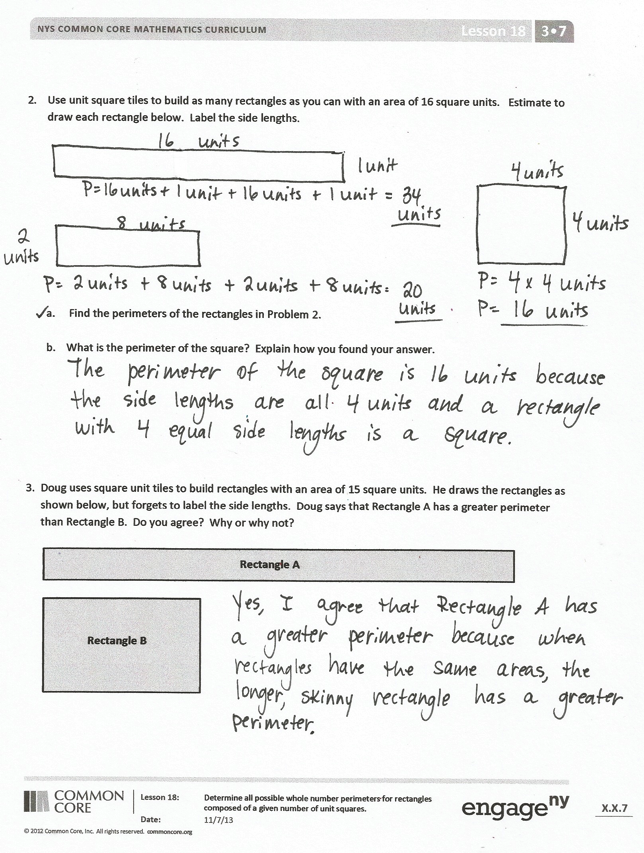 NYS COMMON CORE MATHEMATICS CURRICULUM
Lesson 18
3•7
2. Use unit square tiles to build as many rectangles as you can with an area of 16 square units. Estimate to
draw each rectangle below. Label the side lengths.
16 units
1 unit
P=16 units + 1 unit + 16 units + 1 unit = 34
units
4 units
4 units
P= 4 x 4 units
P= 16 units
8 units
2
units
P= 2 units + 8 units + 2 units + 8 units = 20
units.
✓a. Find the perimeters of the rectangles in Problem 2.
b. What is the perimeter of the square? Explain how you found your answer.
The perimeter of the square is 16 units because
the side lengths are all 4 units and a rectangle
with 4 equal side lengths is a square.
3. Doug uses square unit tiles to build rectangles with an area of 15 square units. He draws the rectangles as
shown below, but forgets to label the side lengths. Doug says that Rectangle A has a greater perimeter
than Rectangle B. Do you agree? Why or why not?
Rectangle A
Rectangle B
Yes, I agree that Rectangle A has
a greater perimeter because when
rectangles have the same areas, the
longer, skinny rectangle has a greater
perimeter.
COMMON
CORE
Lesson 18:
Date:
Determine all possible whole number perimeters for rectangles
composed of a given number of unit squares.
11/7/13
engageny
X.X.7
© 2012 Common Core, Inc. All rights reserved. commoncore.org